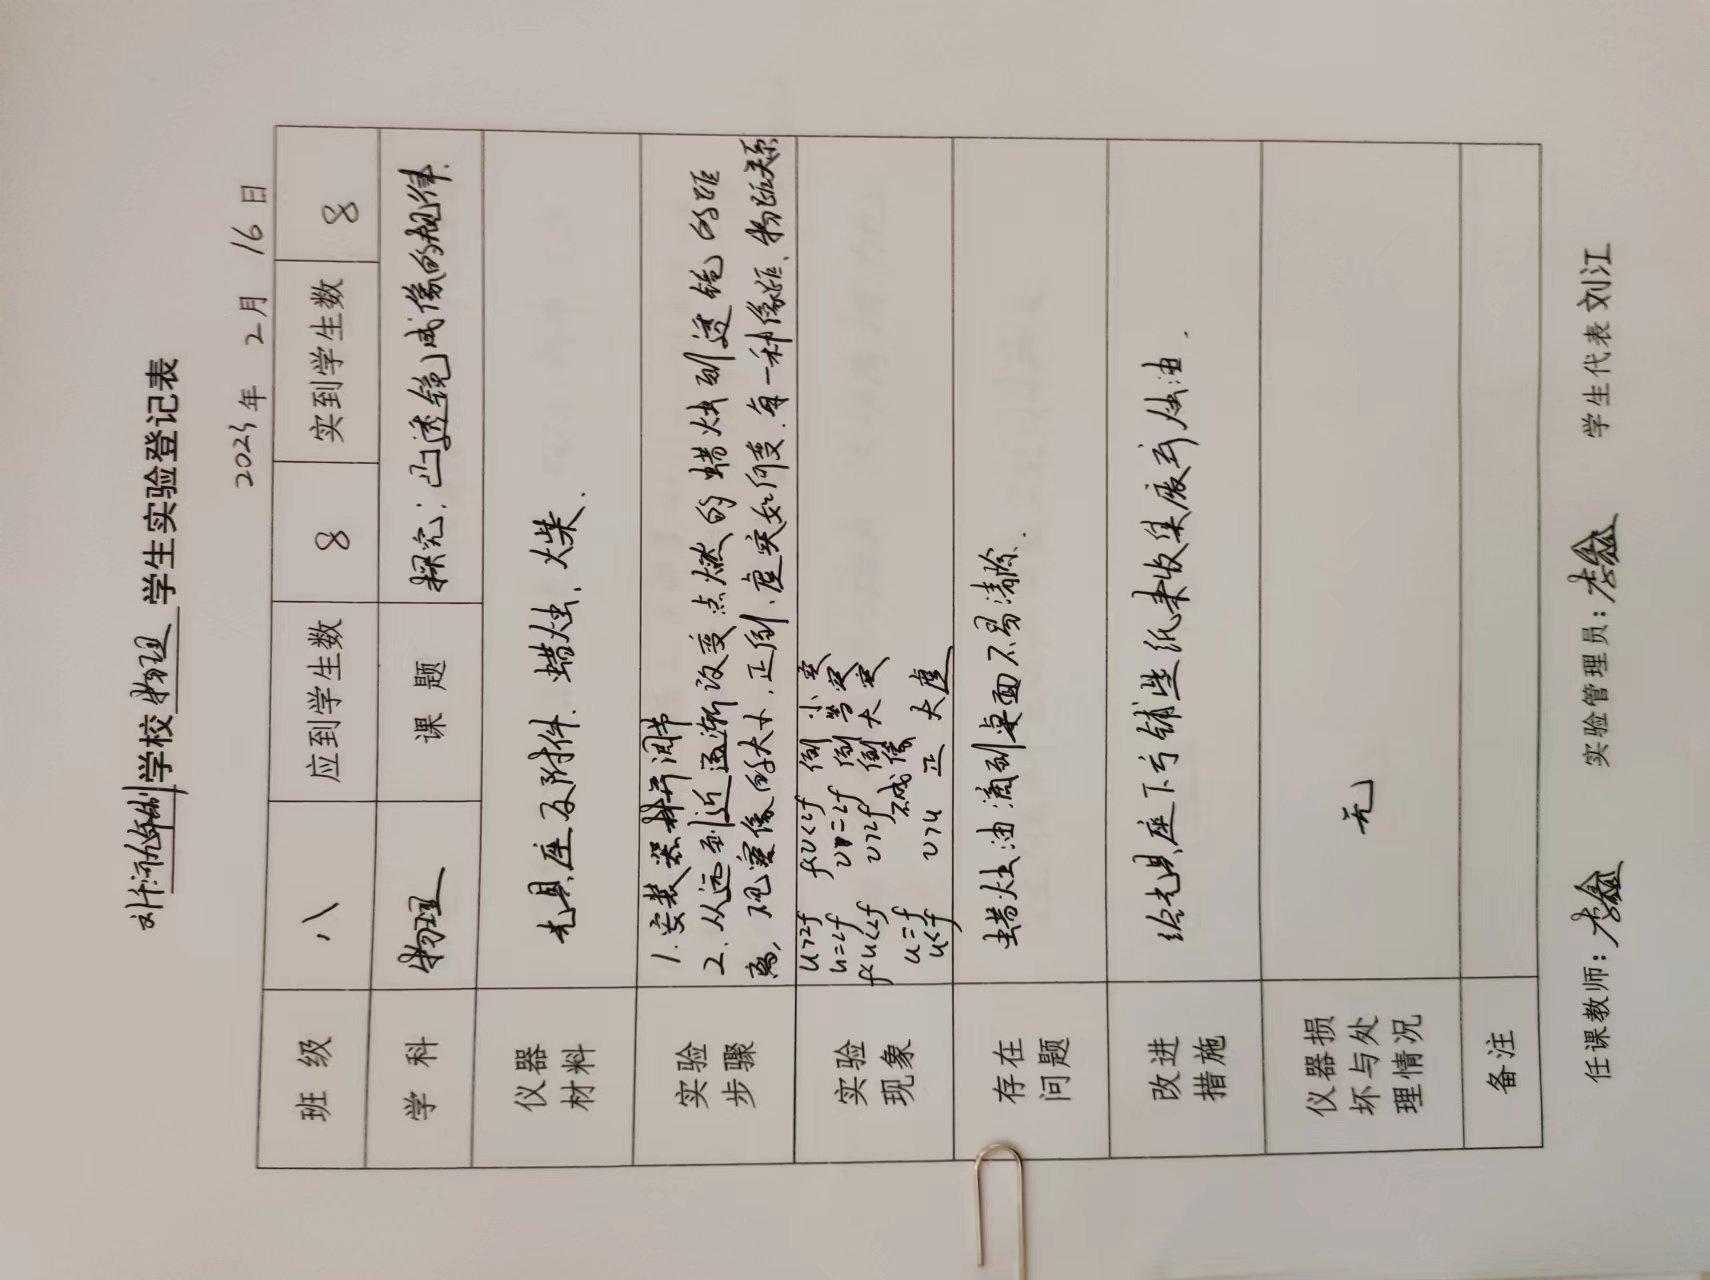 九年制学校 物理 学生实验登记表
2023年 2月 16日
班级 八 应到学生数 8 实到学生数 8
学科 物理 课题 探究:凸透镜成像的规律.
仪器材料 光具座及附件.蜡烛.火柴.
实验步骤 1.安装器材并调节
2.从远到近逐渐改变点燃的蜡烛到透镜的距
离,观察像的大小.正倒.虚实如何变.每一种像距.物距关系
实验现象 u>2f f<v<2f 倒 小 实
u=2f v=2f 倒 等 实
f<u<2f v>2f 倒 大 实
u=f 不成像
u<f v>u 正 大 虚
存在问题 蜡烛油滴到桌面不易清除.
改进措施 给光具座下方铺些纸来收集废弃烛油.
仪器损坏与处理情况 无
备注
任课教师:李鑫 实验管理员:李鑫 学生代表 刘江